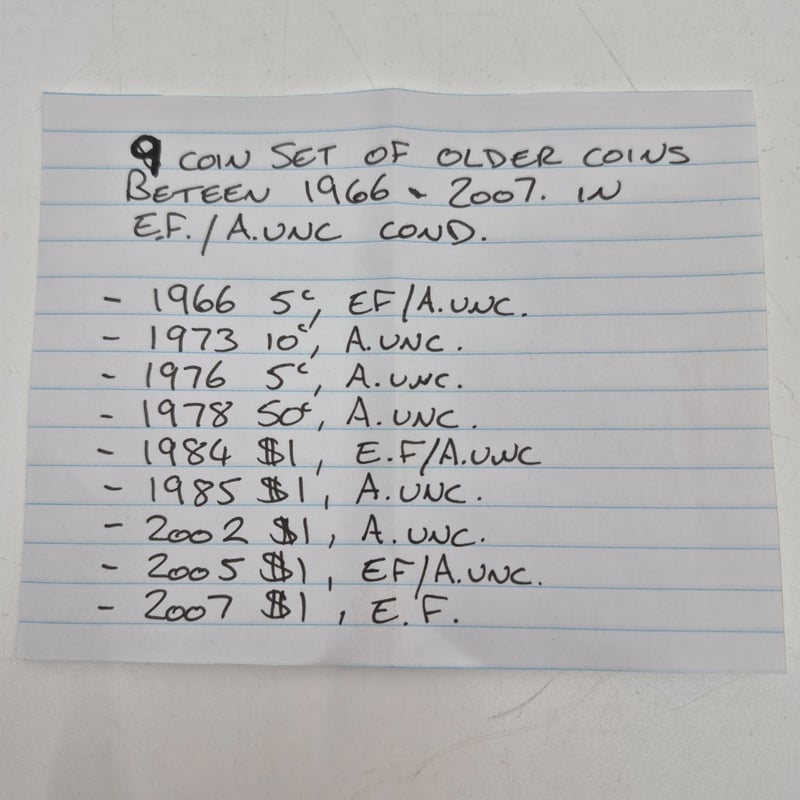 9 COIN SET OF OLDER COINS
BETEEN 1966 - 2007. IN
E.F. / A.UNC COND.
- 1966 5c, EF/A.UNC.
- 1973 10c, A.UNC.
- 1976 5c, A.UNC.
- 1978 50c, A.UNC.
- 1984 $1, E.F/A.UNC
- 1985 $1, A.UNC.
- 2002 $1, A.UNC.
- 2005 $1, EF/A.UNC.
- 2007 $1, E.F.